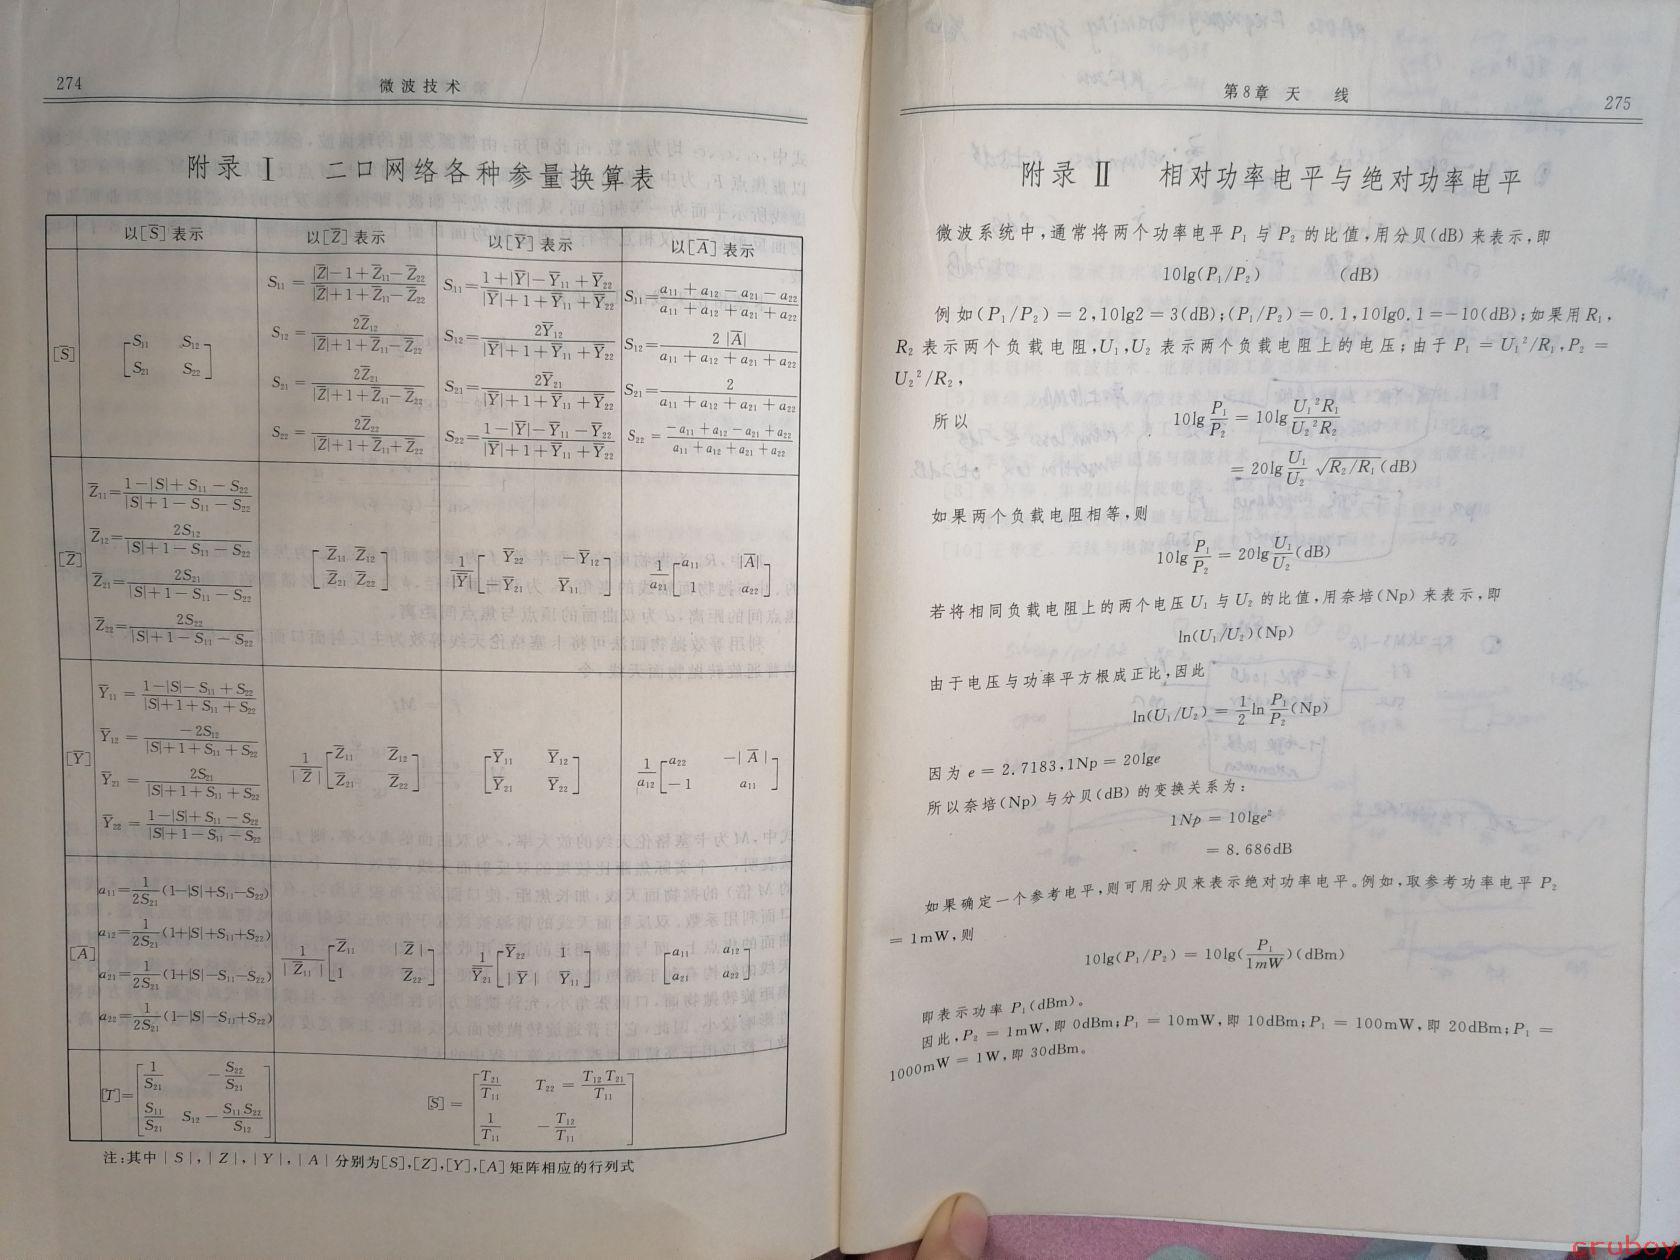 274
微波技术
附录Ⅰ 二口网络各种参量换算表
以[S̅]表示 以[Z̅]表示 以[Y̅]表示 以[A̅]表示
[S̅]
[S₁₁ S₁₂
S₂₁ S₂₂]
S₁₁ = (|Z̅|−1+Z̅₁₁−Z̅₂₂)/(|Z̅|+1+Z̅₁₁−Z̅₂₂)
S₁₂ = 2Z̅₁₂/(|Z̅|+1+Z̅₁₁−Z̅₂₂)
S₂₁ = 2Z̅₂₁/(|Z̅|+1+Z̅₁₁−Z̅₂₂)
S₂₂ = 2Z̅₂₂/(|Z̅|+1+Z̅₁₁+Z̅₂₂)
S₁₁ = (1+|Y̅|−Y̅₁₁+Y̅₂₂)/(|Y̅|+1+Y̅₁₁+Y̅₂₂)
S₁₂ = 2Y̅₁₂/(|Y̅|+1+Y̅₁₁+Y̅₂₂)
S₂₁ = 2Y̅₂₁/(|Y̅|+1+Y̅₁₁+Y̅₂₂)
S₂₂ = (1−|Y̅|−Y̅₁₁−Y̅₂₂)/(|Y̅|+1+Y̅₁₁+Y̅₂₂)
S₁₁ = (a₁₁+a₁₂−a₂₁−a₂₂)/(a₁₁+a₁₂+a₂₁+a₂₂)
S₁₂ = 2|A̅|/(a₁₁+a₁₂+a₂₁+a₂₂)
S₂₁ = 2/(a₁₁+a₁₂+a₂₁+a₂₂)
S₂₂ = (−a₁₁+a₁₂−a₂₁+a₂₂)/(a₁₁+a₁₂+a₂₁+a₂₂)
[Z̅]
Z̅₁₁ = (1−|S|+S₁₁−S₂₂)/(|S|+1−S₁₁−S₂₂)
Z̅₁₂ = 2S₁₂/(|S|+1−S₁₁−S₂₂)
Z̅₂₁ = 2S₂₁/(|S|+1−S₁₁−S₂₂)
Z̅₂₂ = 2S₂₂/(|S|+1−S₁₁−S₂₂)
[Z̅₁₁ Z̅₁₂
Z̅₂₁ Z̅₂₂]
1/|Y̅| [Y̅₂₂ −Y̅₁₂
−Y̅₂₁ Y̅₁₁]
1/a₂₁ [a₁₁ |A̅|
1 a₂₂]
[Y̅]
Y̅₁₁ = (1−|S|−S₁₁+S₂₂)/(|S|+1+S₁₁+S₂₂)
Y̅₁₂ = −2S₁₂/(|S|+1+S₁₁+S₂₂)
Y̅₂₁ = 2S₂₁/(|S|+1+S₁₁+S₂₂)
Y̅₂₂ = (1−|S|+S₁₁−S₂₂)/(|S|+1−S₁₁−S₂₂)
1/|Z̅| [Z̅₁₁ Z̅₁₂
Z̅₂₁ Z̅₂₂]
[Y̅₁₁ Y̅₁₂
Y̅₂₁ Y̅₂₂]
1/a₁₂ [a₂₂ −|A̅|
−1 a₁₁]
[A̅]
a₁₁ = 1/2S₂₁ (1−|S|+S₁₁−S₂₂)
a₁₂ = 1/2S₂₁ (1+|S|+S₁₁+S₂₂)
a₂₁ = 1/2S₂₁ (1+|S|−S₁₁−S₂₂)
a₂₂ = 1/2S₂₁ (1−|S|−S₁₁+S₂₂)
1/|Z̅₁₁| [Z̅₁₁ |Z̅|
1 Z̅₂₂]
1/Y̅₂₁ [Y̅₂₂ 1
|Y̅| Y̅₁₁]
[a₁₁ a₁₂
a₂₁ a₂₂]
[T]= [1/S₂₁ −S₂₂/S₂₁
S₁₁/S₂₁ S₁₂−S₁₁S₂₂/S₁₂]
[S] = [T₂₁/T₁₁ T₂₂ = T₁₂T₂₁/T₁₁
1/T₁₁ −T₁₂/T₁₁]
注:其中|S|,|Z|,|Y|,|A|分别为[S],[Z],[Y],[A]矩阵相应的行列式
第8章 天 线
275
附录Ⅱ 相对功率电平与绝对功率电平
微波系统中,通常将两个功率电平P₁与P₂的比值,用分贝(dB)来表示,即
10lg(P₁/P₂) (dB)
例如(P₁/P₂)=2,10lg2=3(dB);(P₁/P₂)=0.1,10lg0.1=−10(dB);如果用R₁,
R₂表示两个负载电阻,U₁,U₂表示两个负载电阻上的电压;由于P₁=U₁²/R₁,P₂=
U₂²/R₂,
所以 10lg P₁/P₂ = 10lg U₁²R₁/U₂²R₂
= 20lg U₁/U₂ √R₂/R₁ (dB)
如果两个负载电阻相等,则
10lg P₁/P₂ = 20lg U₁/U₂ (dB)
若将相同负载电阻上的两个电压U₁与U₂的比值,用奈培(Np)来表示,即
ln(U₁/U₂)(Np)
由于电压与功率平方根成正比,因此
ln(U₁/U₂) = 1/2 ln P₁/P₂ (Np)
因为e=2.7183,1Np=20lge
所以奈培(Np)与分贝(dB)的变换关系为:
1Np = 10lge²
= 8.686dB
如果确定一个参考电平,则可用分贝来表示绝对功率电平。例如,取参考功率电平P₂
=1mW,则
10lg(P₁/P₂) = 10lg(P₁/1mW)(dBm)
即表示功率P₁(dBm)。
因此,P₂=1mW,即0dBm;P₁=10mW,即10dBm;P₁=100mW,即20dBm;P₁=
1000mW=1W,即30dBm。
cruboy